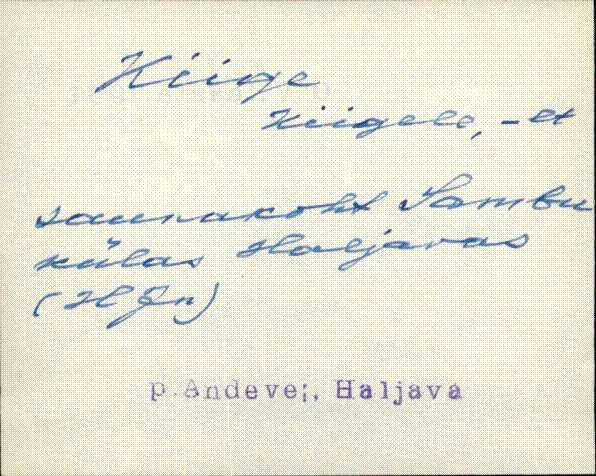 Kiige
Kiigele, -et
saunakoht Sambu
külas Haljavas
(HJn)
P. Andevei, Haljava